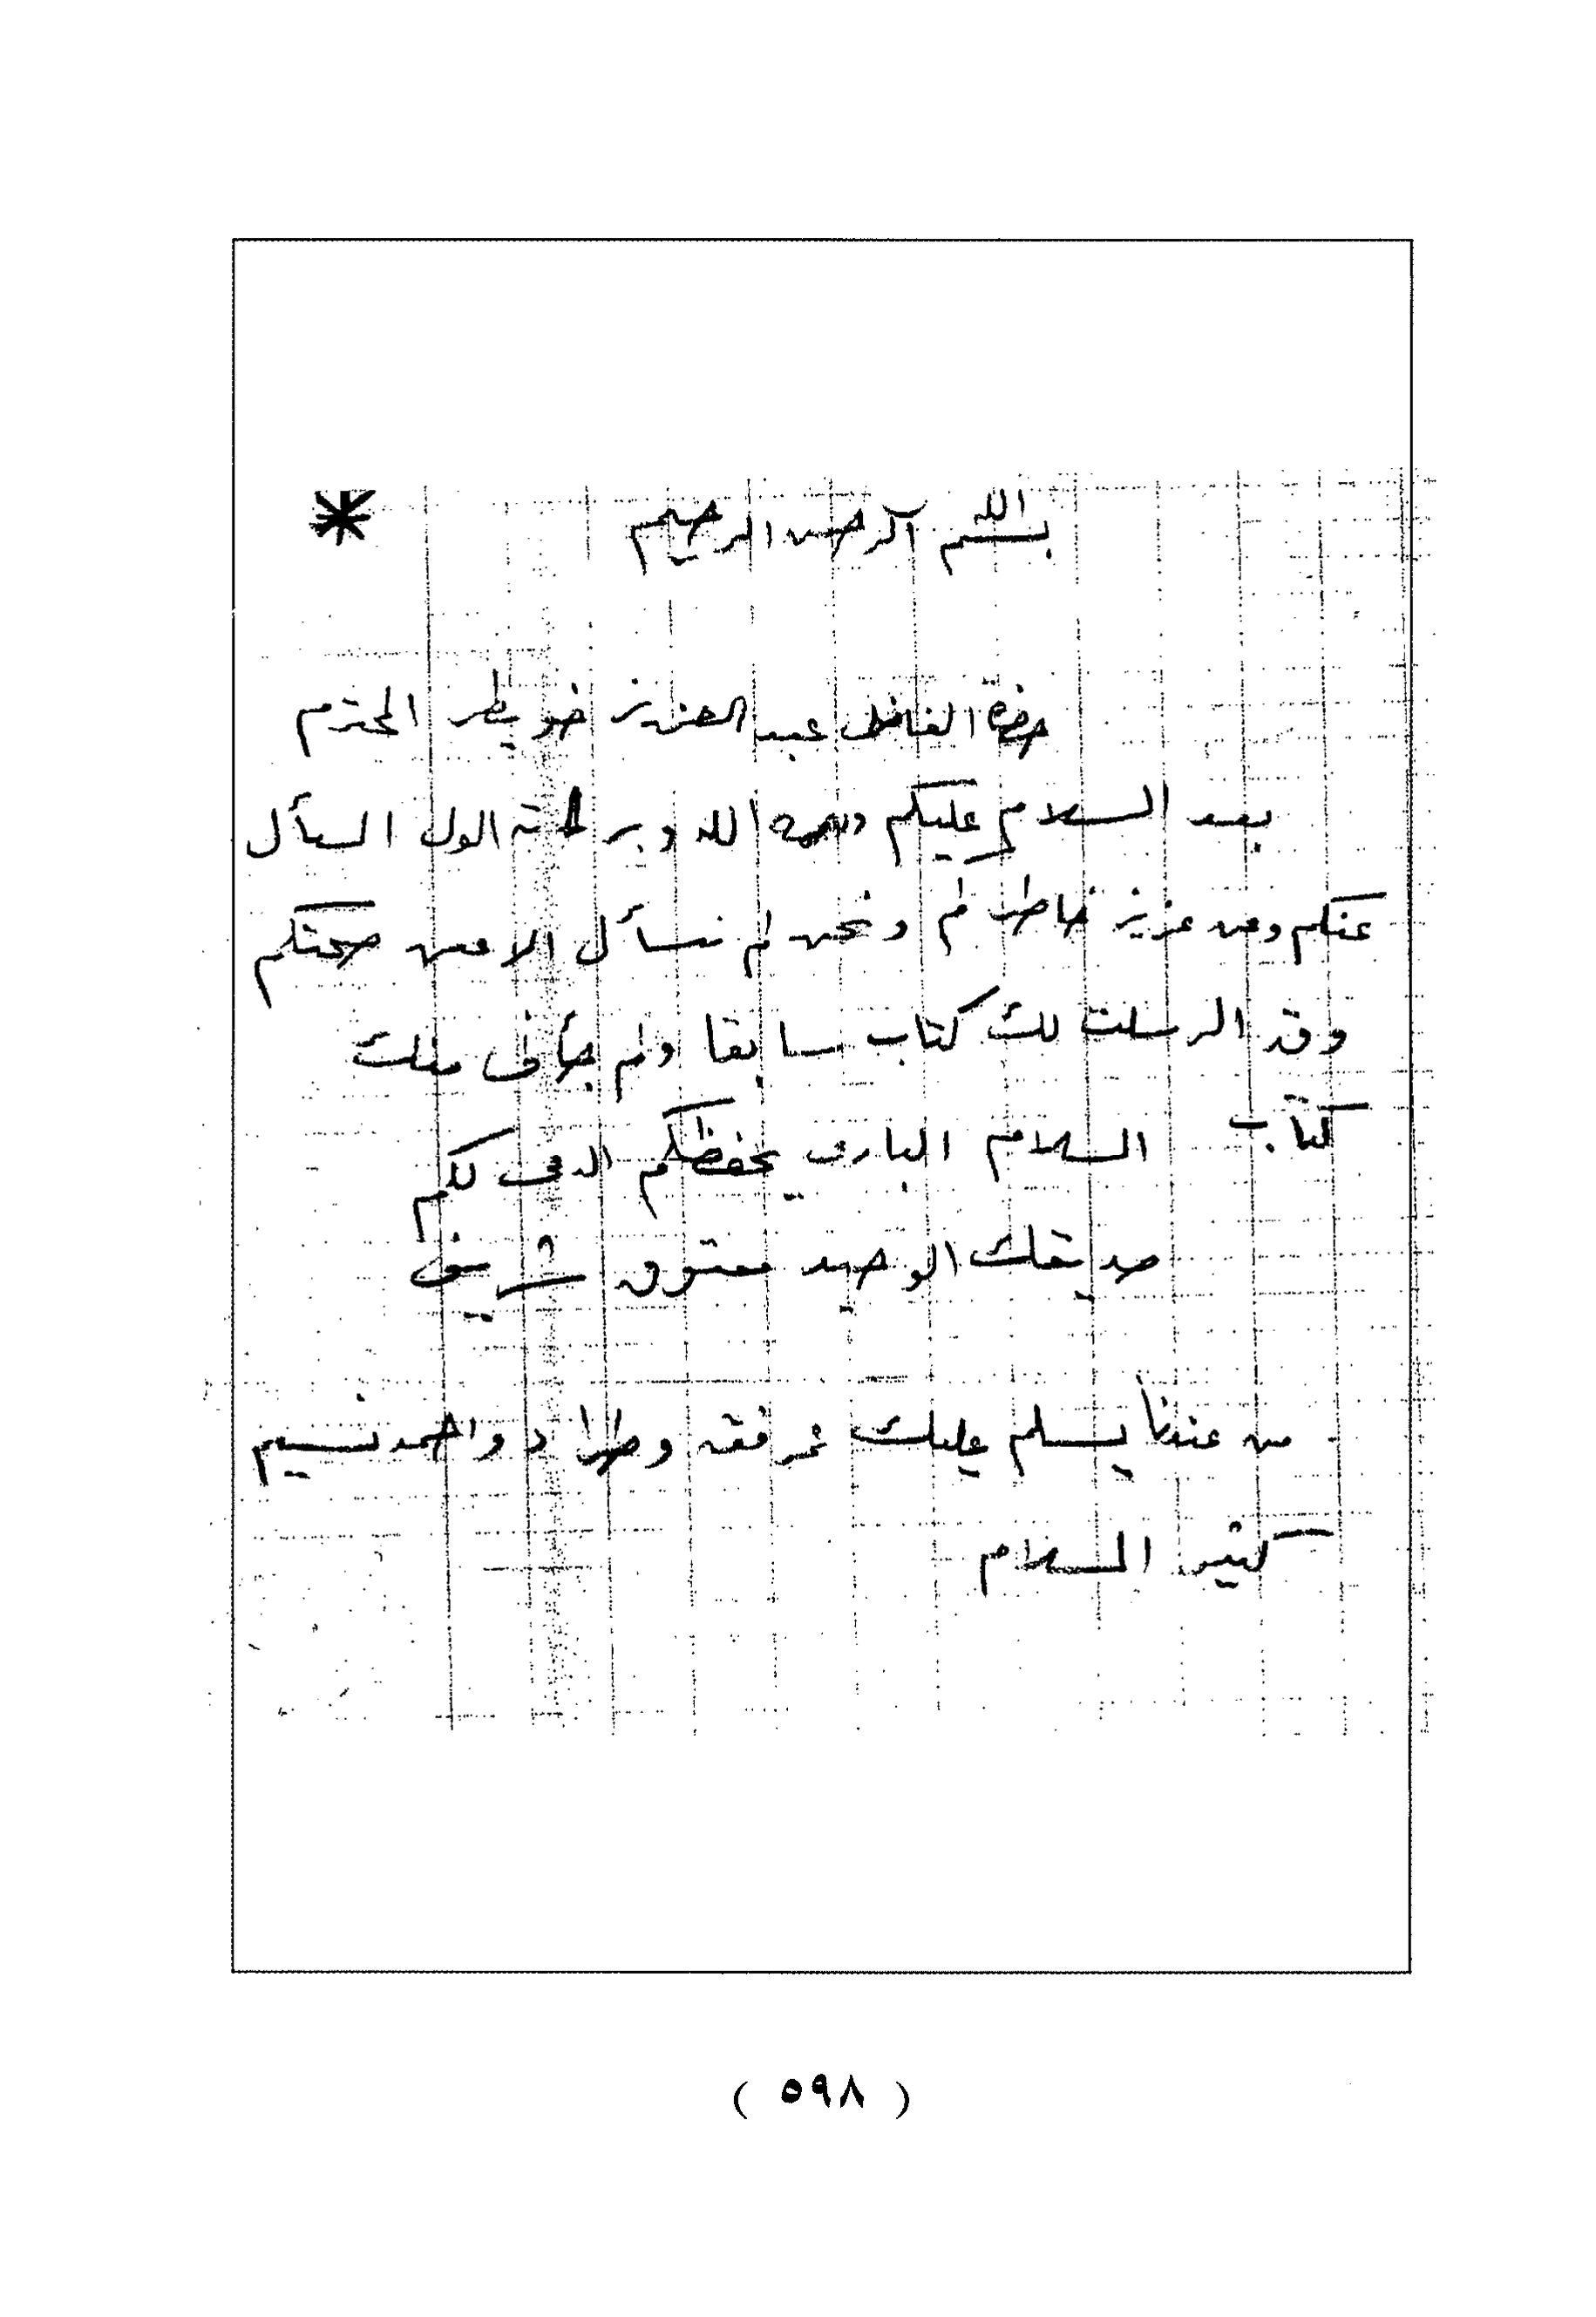 بسم الله الرحمن الرحيم
حضرة الفاضل عبد العزيز خويطر المحترم
بعد السلام عليكم ورحمة الله وبركاته الول السأل
عنكم وعن عزيز خاطركم ونحن لم نسأل الا عن صحتكم
وقد ارسلت لك كتاب سابقا ولم يأتى منك
كتاب السلام البارى يحفظكم لكم
صديقك الوحيد معتوق شريف
من عندنا يسلم عليك عمر فقه وطراد واحمد نسيم
كثير السلام
( ٥٩٨ )